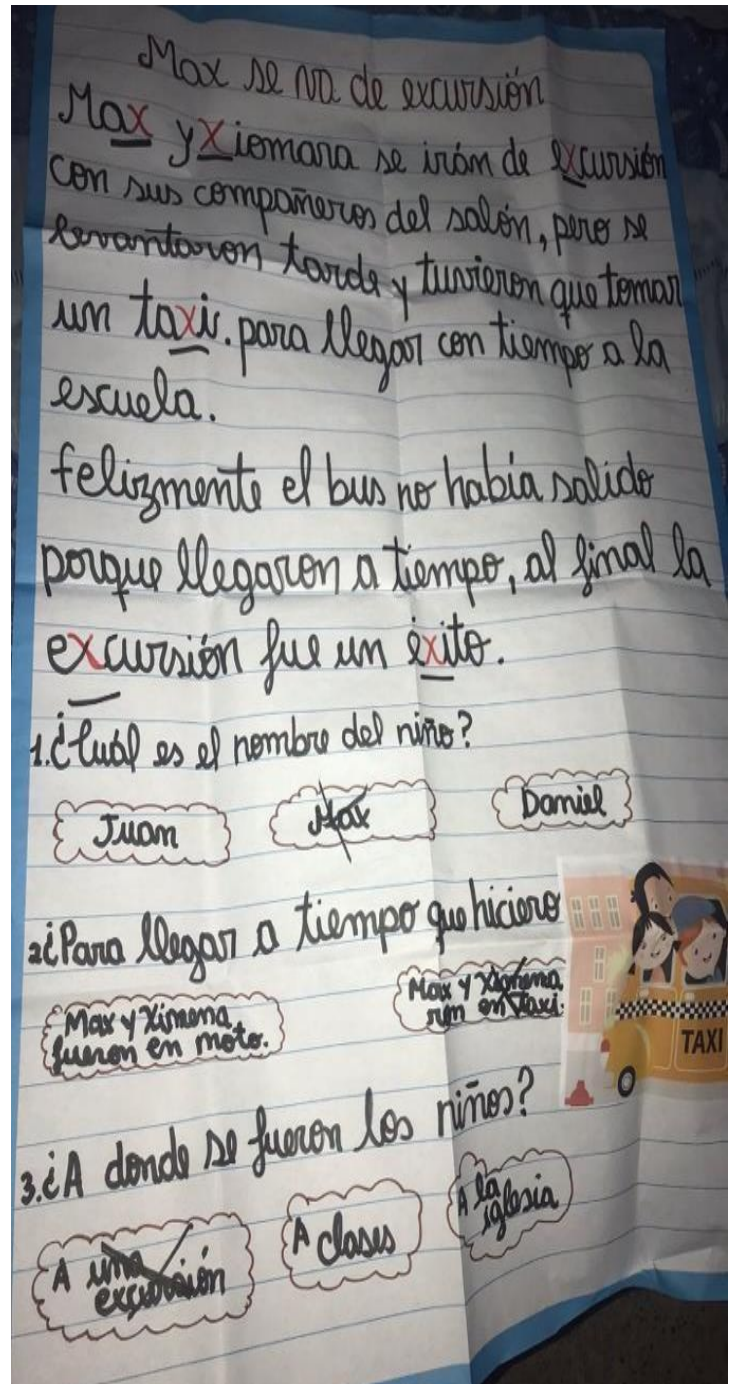 Max se va de excursión
Max y Xiomara se irán de excursión
con sus compañeros del salón, pero se
levantaron tarde y tuvieron que tomar
un taxis. para llegar con tiempo a la
escuela.
felizmente el bus no había salido
porque llegaron a tiempo, al final la
excursión fue un éxito.
1. ¿Cuál es el nombre del niño?
Juan Max Daniel
2 ¿Para llegar a tiempo que hiciero
Max y Ximena
fueron en moto.
Max y
ron en taxi.
TAXI
3. ¿A donde se fueron los niños?
A una
excursión
A clases
A la
iglesia